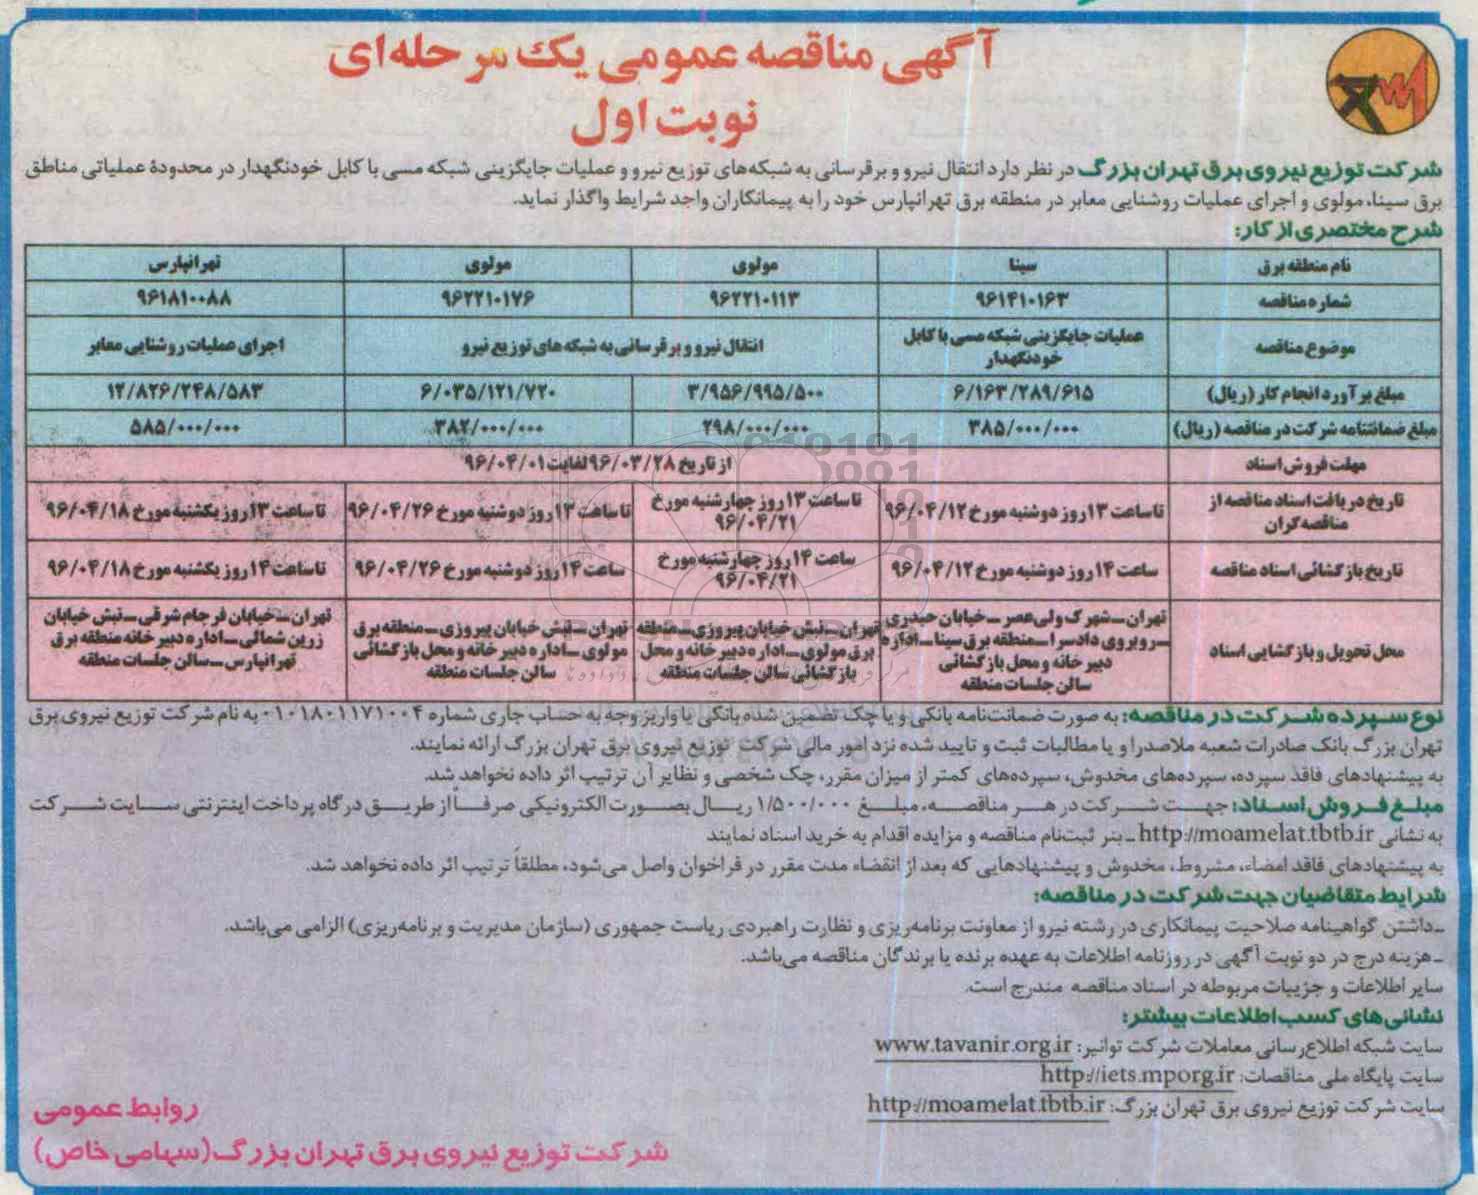 آگهی مناقصه عمومی یک مرحله‌ای
نوبت اول
شرکت توزیع نیروی برق تهران بزرگ در نظر دارد انتقال نیرو و برقرسانی به شبکه‌های توزیع نیرو و عملیات جایگزینی شبکه مسی با کابل خودنگهدار در محدودهٔ عملیاتی مناطق
برق سینا، مولوی و اجرای عملیات روشنایی معابر در منطقه برق تهرانپارس خود را به پیمانکاران واجد شرایط واگذار نماید.
شرح مختصری از کار:
نام منطقه برق سینا مولوی مولوی تهرانپارس
شماره مناقصه ۹۶۱۴۱۰۱۶۳ ۹۶۲۲۱۰۱۱۳ ۹۶۲۲۱۰۱۷۶ ۹۶۱۸۱۰۰۸۸
موضوع مناقصه عملیات جایگزینی شبکه مسی با کابل خودنگهدار انتقال نیرو و برقرسانی به شبکه های توزیع نیرو اجرای عملیات روشنایی معابر
مبلغ برآورد انجام کار (ریال) ۶/۱۶۳/۲۸۹/۶۱۵ ۳/۹۵۶/۹۹۵/۵۰۰ ۶/۰۳۵/۱۲۱/۷۲۰ ۱۲/۸۲۶/۲۴۸/۵۸۳
مبلغ ضمانتنامه شرکت در مناقصه (ریال) ۳۸۵/۰۰۰/۰۰۰ ۲۹۸/۰۰۰/۰۰۰ ۳۸۲/۰۰۰/۰۰۰ ۵۸۵/۰۰۰/۰۰۰
مهلت فروش اسناد از تاریخ ۹۶/۰۳/۲۸ لغایت ۹۶/۰۴/۰۱
تاریخ دریافت اسناد مناقصه از مناقصه گران تا ساعت ۱۳ روز دوشنبه مورخ ۹۶/۰۴/۱۲ تا ساعت ۱۳ روز چهارشنبه مورخ ۹۶/۰۴/۲۱ تا ساعت ۱۳ روز دوشنبه مورخ ۹۶/۰۴/۲۶ تا ساعت ۱۳ روز یکشنبه مورخ ۹۶/۰۴/۱۸
تاریخ بازگشائی اسناد مناقصه ساعت ۱۴ روز دوشنبه مورخ ۹۶/۰۴/۱۲ ساعت ۱۴ روز چهارشنبه مورخ ۹۶/۰۴/۲۱ ساعت ۱۴ روز دوشنبه مورخ ۹۶/۰۴/۲۶ تا ساعت ۱۴ روز یکشنبه مورخ ۹۶/۰۴/۱۸
محل تحویل و بازگشایی اسناد تهران ــ شهرک ولی عصر ــ خیابان حیدری ــ روبروی دادسرا ــ منطقه برق سینا ــ اداره دبیر خانه و محل بازگشائی سالن جلسات منطقه تهران ــ نبش خیابان پیروزی ــ منطقه برق مولوی ــ اداره دبیر خانه و محل بازگشائی سالن جلسات منطقه تهران ــ نبش خیابان پیروزی ــ منطقه برق مولوی ــ اداره دبیر خانه و محل بازگشائی سالن جلسات منطقه تهران ــ خیابان فرجام شرقی ــ نبش خیابان زرین شمالی ــ اداره دبیر خانه منطقه برق تهرانپارس ــ سالن جلسات منطقه
نوع سپرده شرکت در مناقصه: به صورت ضمانت‌نامه بانکی و یا چک تضمین شده بانکی یا واریز وجه به حساب جاری شماره ۰۱۰۱۸۰۱۱۷۱۰۰۴ به نام شرکت توزیع نیروی برق
تهران بزرگ بانک صادرات شعبه ملاصدرا و یا مطالبات ثبت و تایید شده نزد امور مالی شرکت توزیع نیروی برق تهران بزرگ ارائه نمایند.
به پیشنهادهای فاقد سپرده، سپرده‌های مخدوش، سپرده‌های کمتر از میزان مقرر، چک شخصی و نظایر آن ترتیب اثر داده نخواهد شد.
مبلغ فروش اسناد: جهت شرکت در هر مناقصه، مبلغ ۱/۵۰۰/۰۰۰ ریال بصورت الکترونیکی صرفاً از طریق درگاه پرداخت اینترنتی سایت شرکت
به نشانی http://moamelat.tbtb.ir ــ بنر ثبت‌نام مناقصه و مزایده اقدام به خرید اسناد نمایند
به پیشنهادهای فاقد امضاء، مشروط، مخدوش و پیشنهادهایی که بعد از انقضاء مدت مقرر در فراخوان واصل می‌شود، مطلقاً ترتیب اثر داده نخواهد شد.
شرایط متقاضیان جهت شرکت در مناقصه:
ــ داشتن گواهینامه صلاحیت پیمانکاری در رشته نیرو از معاونت برنامه‌ریزی و نظارت راهبردی ریاست جمهوری (سازمان مدیریت و برنامه‌ریزی) الزامی می‌باشد.
ــ هزینه درج در دو نوبت آگهی در روزنامه اطلاعات به عهده برنده یا برندگان مناقصه می‌باشد.
سایر اطلاعات و جزییات مربوطه در اسناد مناقصه مندرج است.
نشانی های کسب اطلاعات بیشتر:
سایت شبکه اطلاع‌رسانی معاملات شرکت توانیر: www.tavanir.org.ir
سایت پایگاه ملی مناقصات: http://iets.mporg.ir
سایت شرکت توزیع نیروی برق تهران بزرگ: http://moamelat.tbtb.ir
روابط عمومی
شرکت توزیع نیروی برق تهران بزرگ (سهامی خاص)